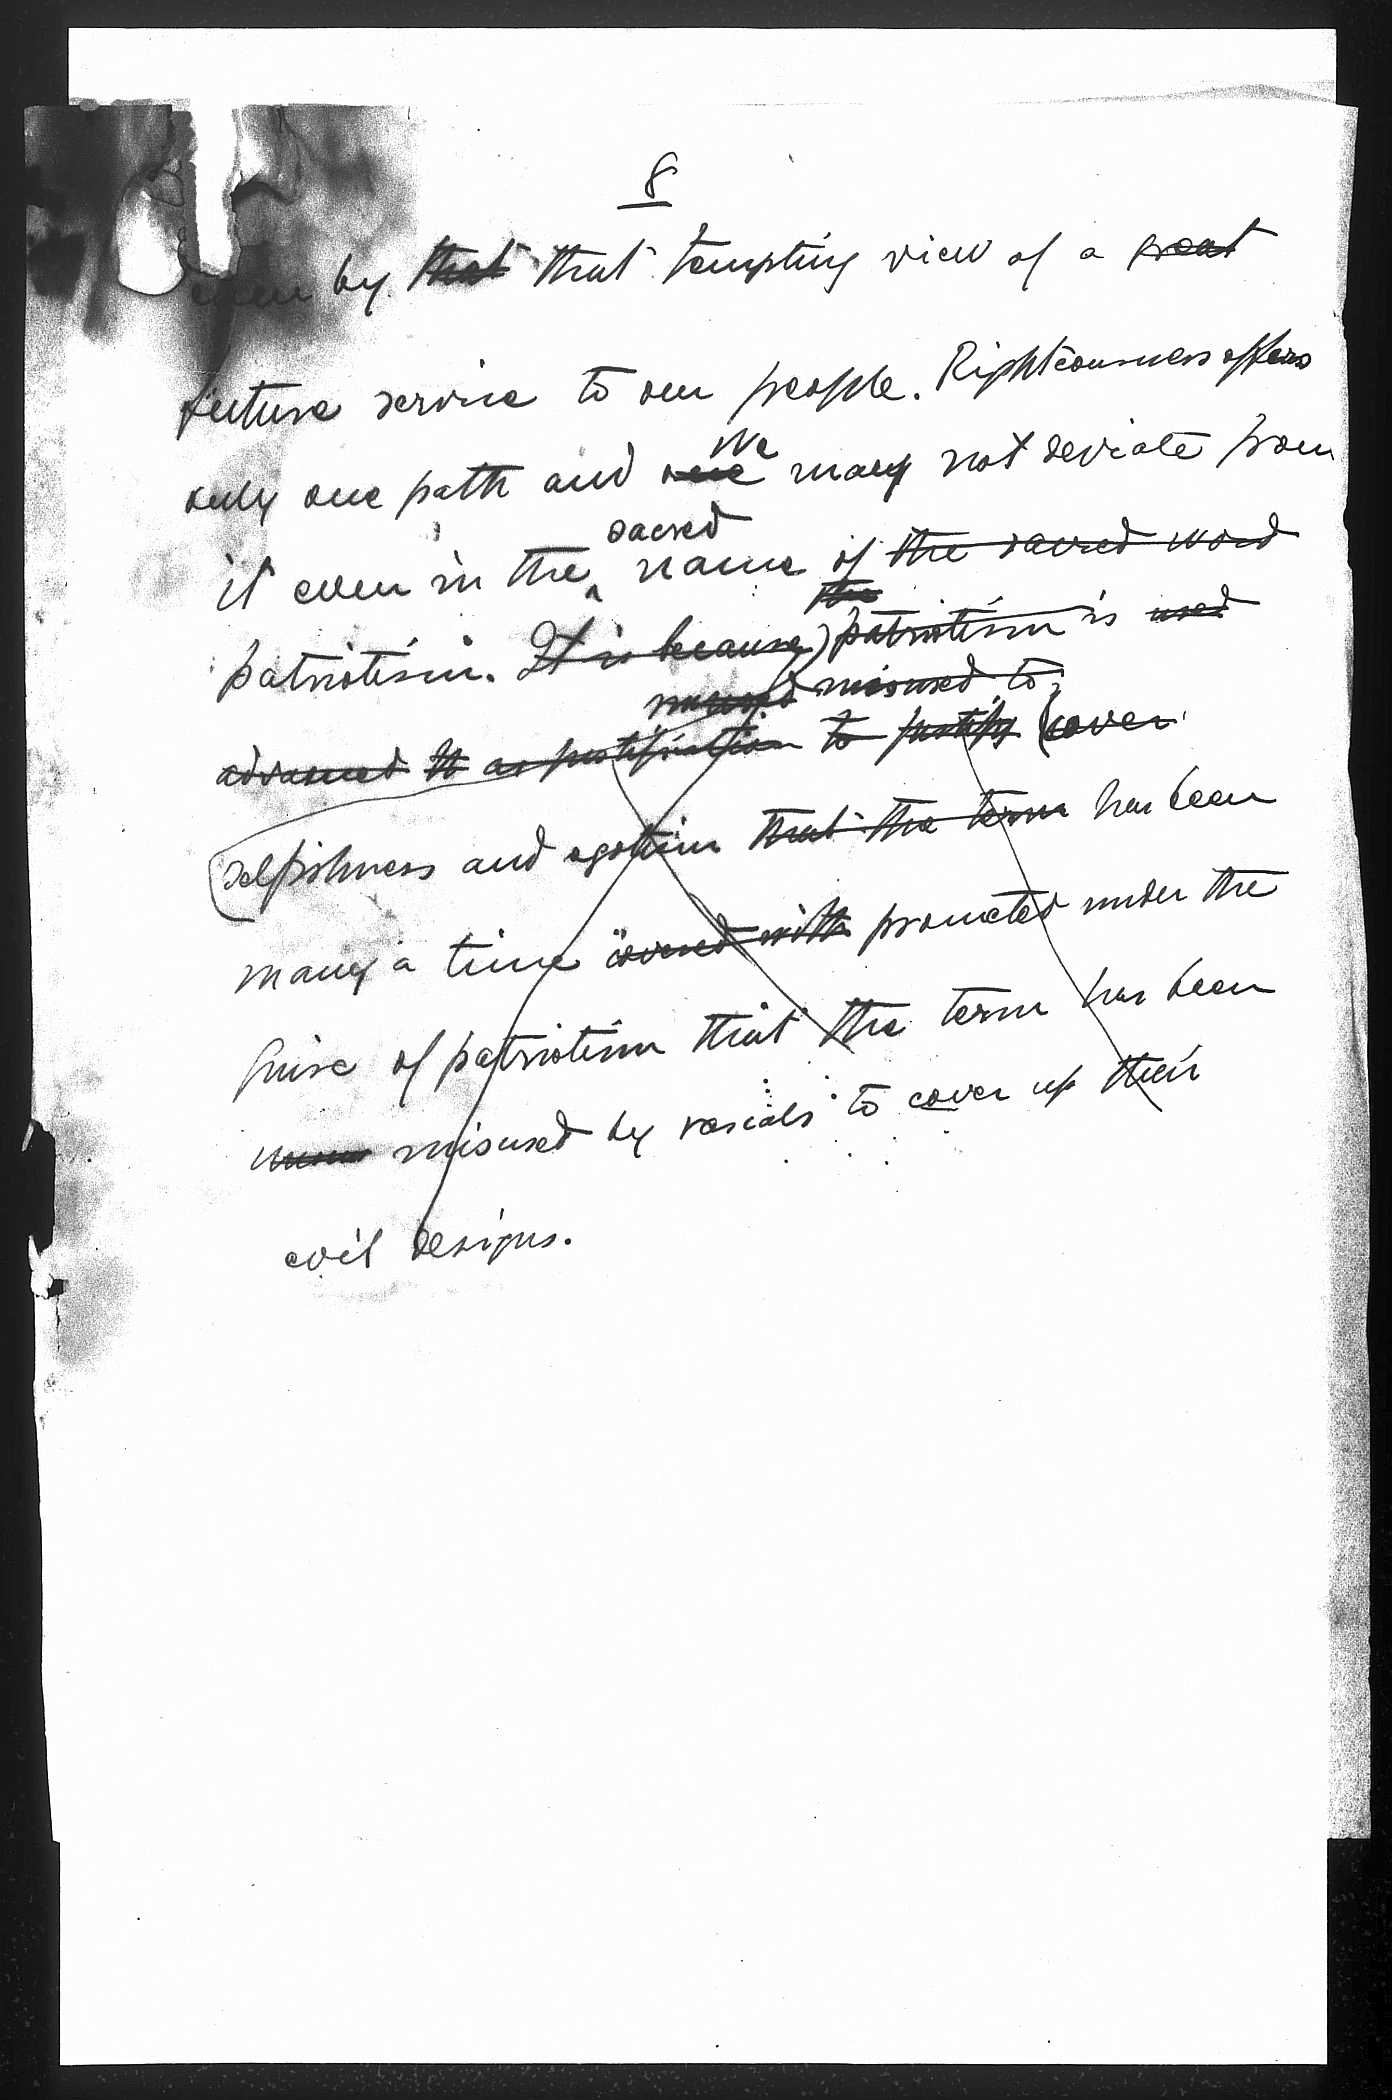 8
even by that that tempting view of a great
future service to our people. Righteousness offers
only one path and one we may not deviate from
it even in the sacred name of the sacred word
the
patriotism. It is because patriotism is used
misused to
advanced to as justification to justify cover
selfishness and egotism that the term has been
many a time covered with promoted under the
guise of patriotism that the term has been
misused by rascals to cover up their
evil designs.